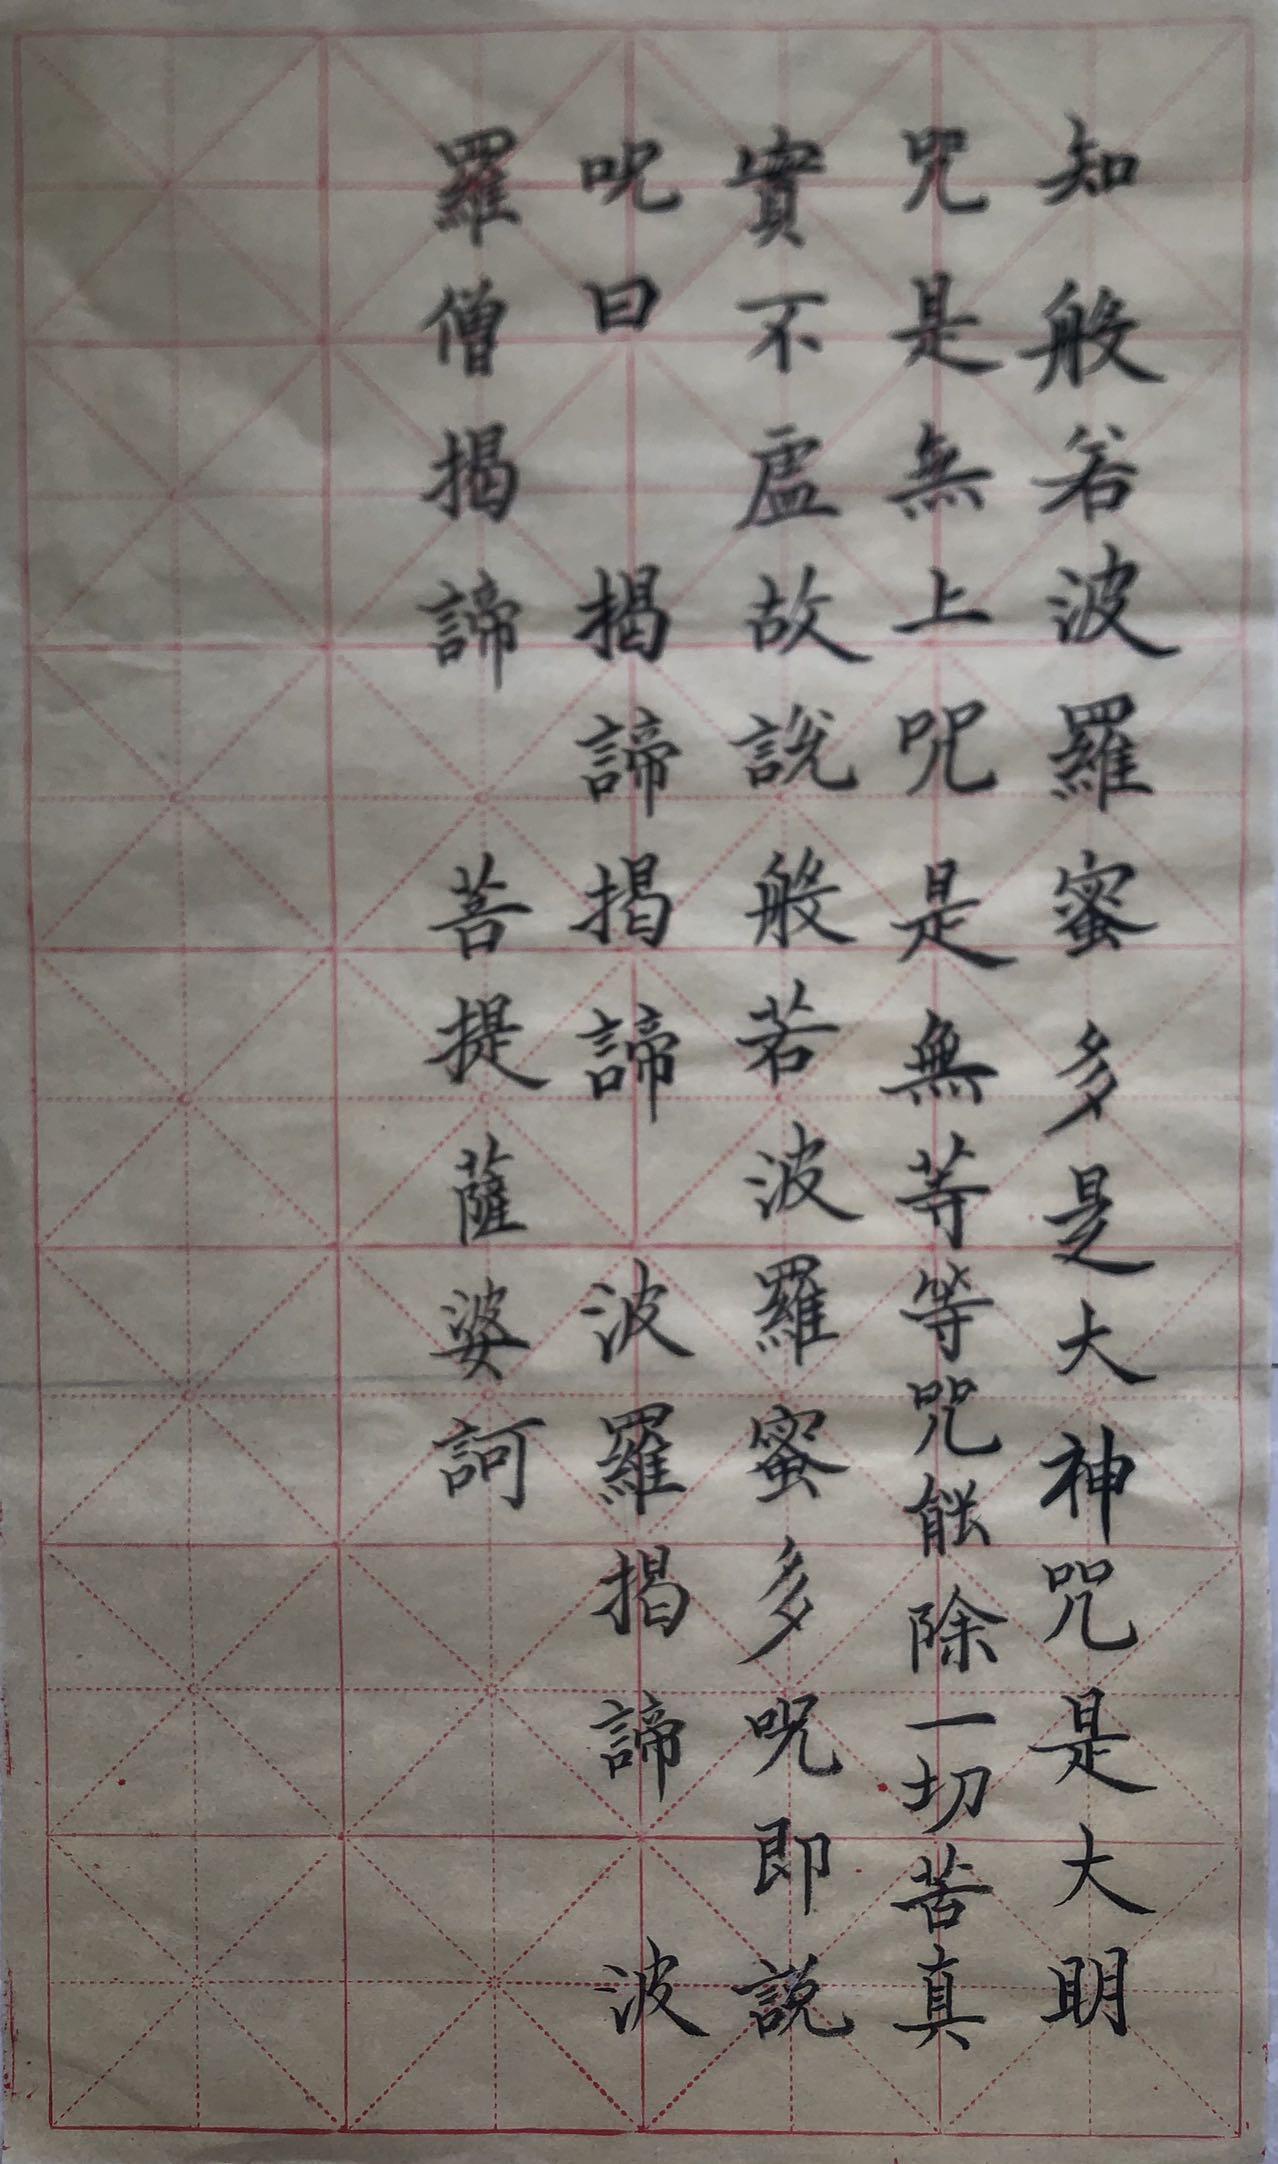 知般若波羅蜜多是大神咒是大明
咒是無上咒是無等等咒能除一切苦真
實不虛故說般若波羅蜜多呪即説
呪曰 揭諦揭諦 波羅揭諦 波
羅僧揭諦 菩提薩婆訶